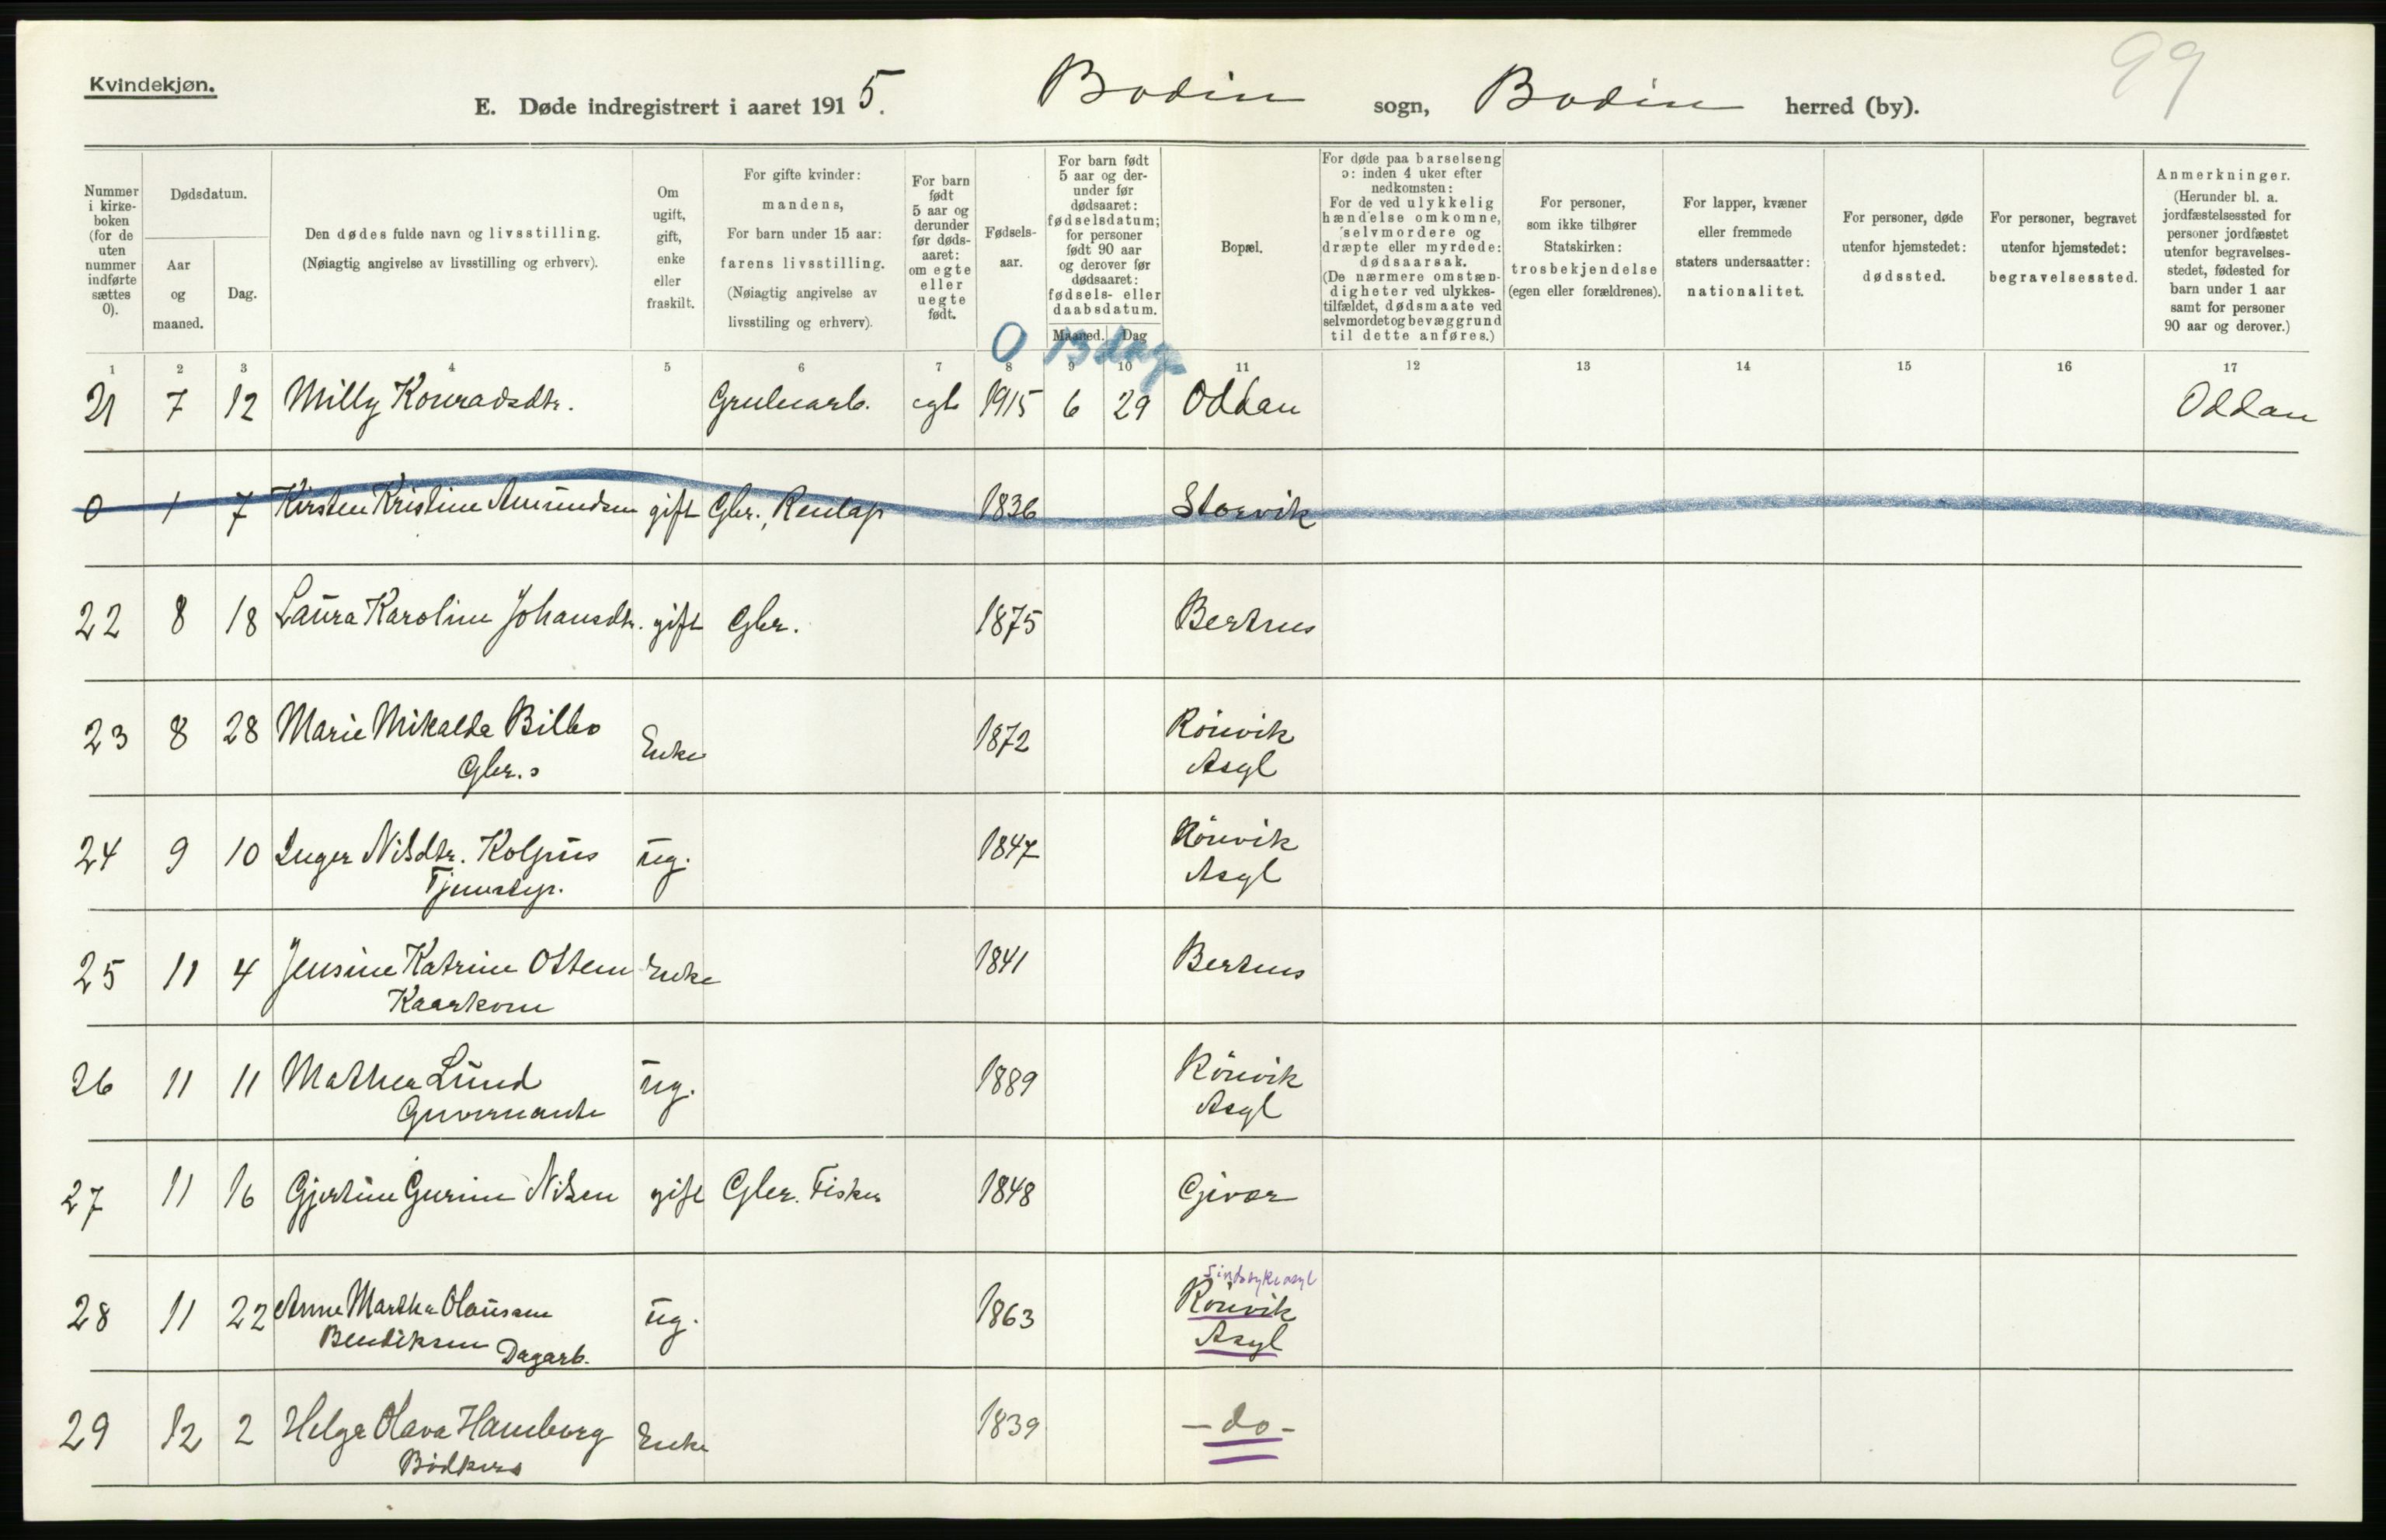 99
Kvindekjøn.
E. Døde indregistrert i aaret 1915. Bodin sogn, Bodin herred (by).
Nummer i kirke-boken (for de uten nummer indførte sættes 0).
Dødsdatum.
Aar og maaned.
Dag.
Den dødes fulde navn og livsstilling.
(Nøiagtig angivelse av livsstilling og erhverv).
Om ugift, gift, enke eller fraskilt.
For gifte kvinder: mandens,
For barn under 15 aar: farens livsstilling.
(Nøiagtig angivelse av livsstiling og erhverv).
For barn født 5 aar og derunder før døds-aaret: om egte eller uegte født.
Fødsels-aar.
For barn født 5 aar og der-under før dødsaaret: fødselsdatum; for personer født 90 aar og derover før dødsaaret: fødsels- eller daabsdatum.
Maaned. Dag
Bopæl.
For døde paa barselseng ɔ: inden 4 uker efter nedkomsten:
For de ved ulykkelig hændelse omkomne, selvmordere og dræpte eller myrdede: dødsaarsak.
(De nærmere omstæn-digheter ved ulykkes-tilfældet, dødsmaate ved selvmordet og bevæggrund til dette anføres.)
For personer, som ikke tilhører Statskirken: trosbekjendelse (egen eller forældrenes).
For lapper, kvæner eller fremmede staters undersaatter: nationalitet.
For personer, døde utenfor hjemstedet: dødssted.
For personer, begravet utenfor hjemstedet: begravelsessted.
Anmerkninger.
(Herunder bl. a. jordfæstelsessted for personer jordfæstet utenfor begravelses-stedet, fødested for barn under 1 aar samt for personer 90 aar og derover.)
0 13 dage
1 2 3 4 5 6 7 8 9 10 11 12 13 14 15 16 17
21 7 12 Milly Konradsdtr. Grubearb. egte 1915 6 29 Oddan Oddan
0 1 7 Kirsten Kristine Amundsen gift Gbr., 1836 Storvik
22 8 18 Laura Karoline Johansdtr. gift Gbr. 1875 Bertnes
23 8 28 Marie Mikalda Bilbo Enke 1872 Rönvik
Gbr.s Asyl
24 9 10 Inger Nilsdtr. Kolpus ug. 1847 Rönvik
Tjenestep. Asyl
25 11 4 Jensine Katrine Ottem Enke 1841 Bertnes
Kaarkone
26 11 11 Mathea Lund ug. 1889 Rönvik
Guvernante Asyl
27 11 16 Gjertine Gurine Nilsen gift Gbr. Fisker 1848 Givær
Sindssykeasyl
28 11 22 Anne Martha Olausen ug. 1863 Rönvik
Bendiksen Dagarb. Asyl
29 12 2 Helga Olava Hamborg Enke 1839 - do -
Bödkers